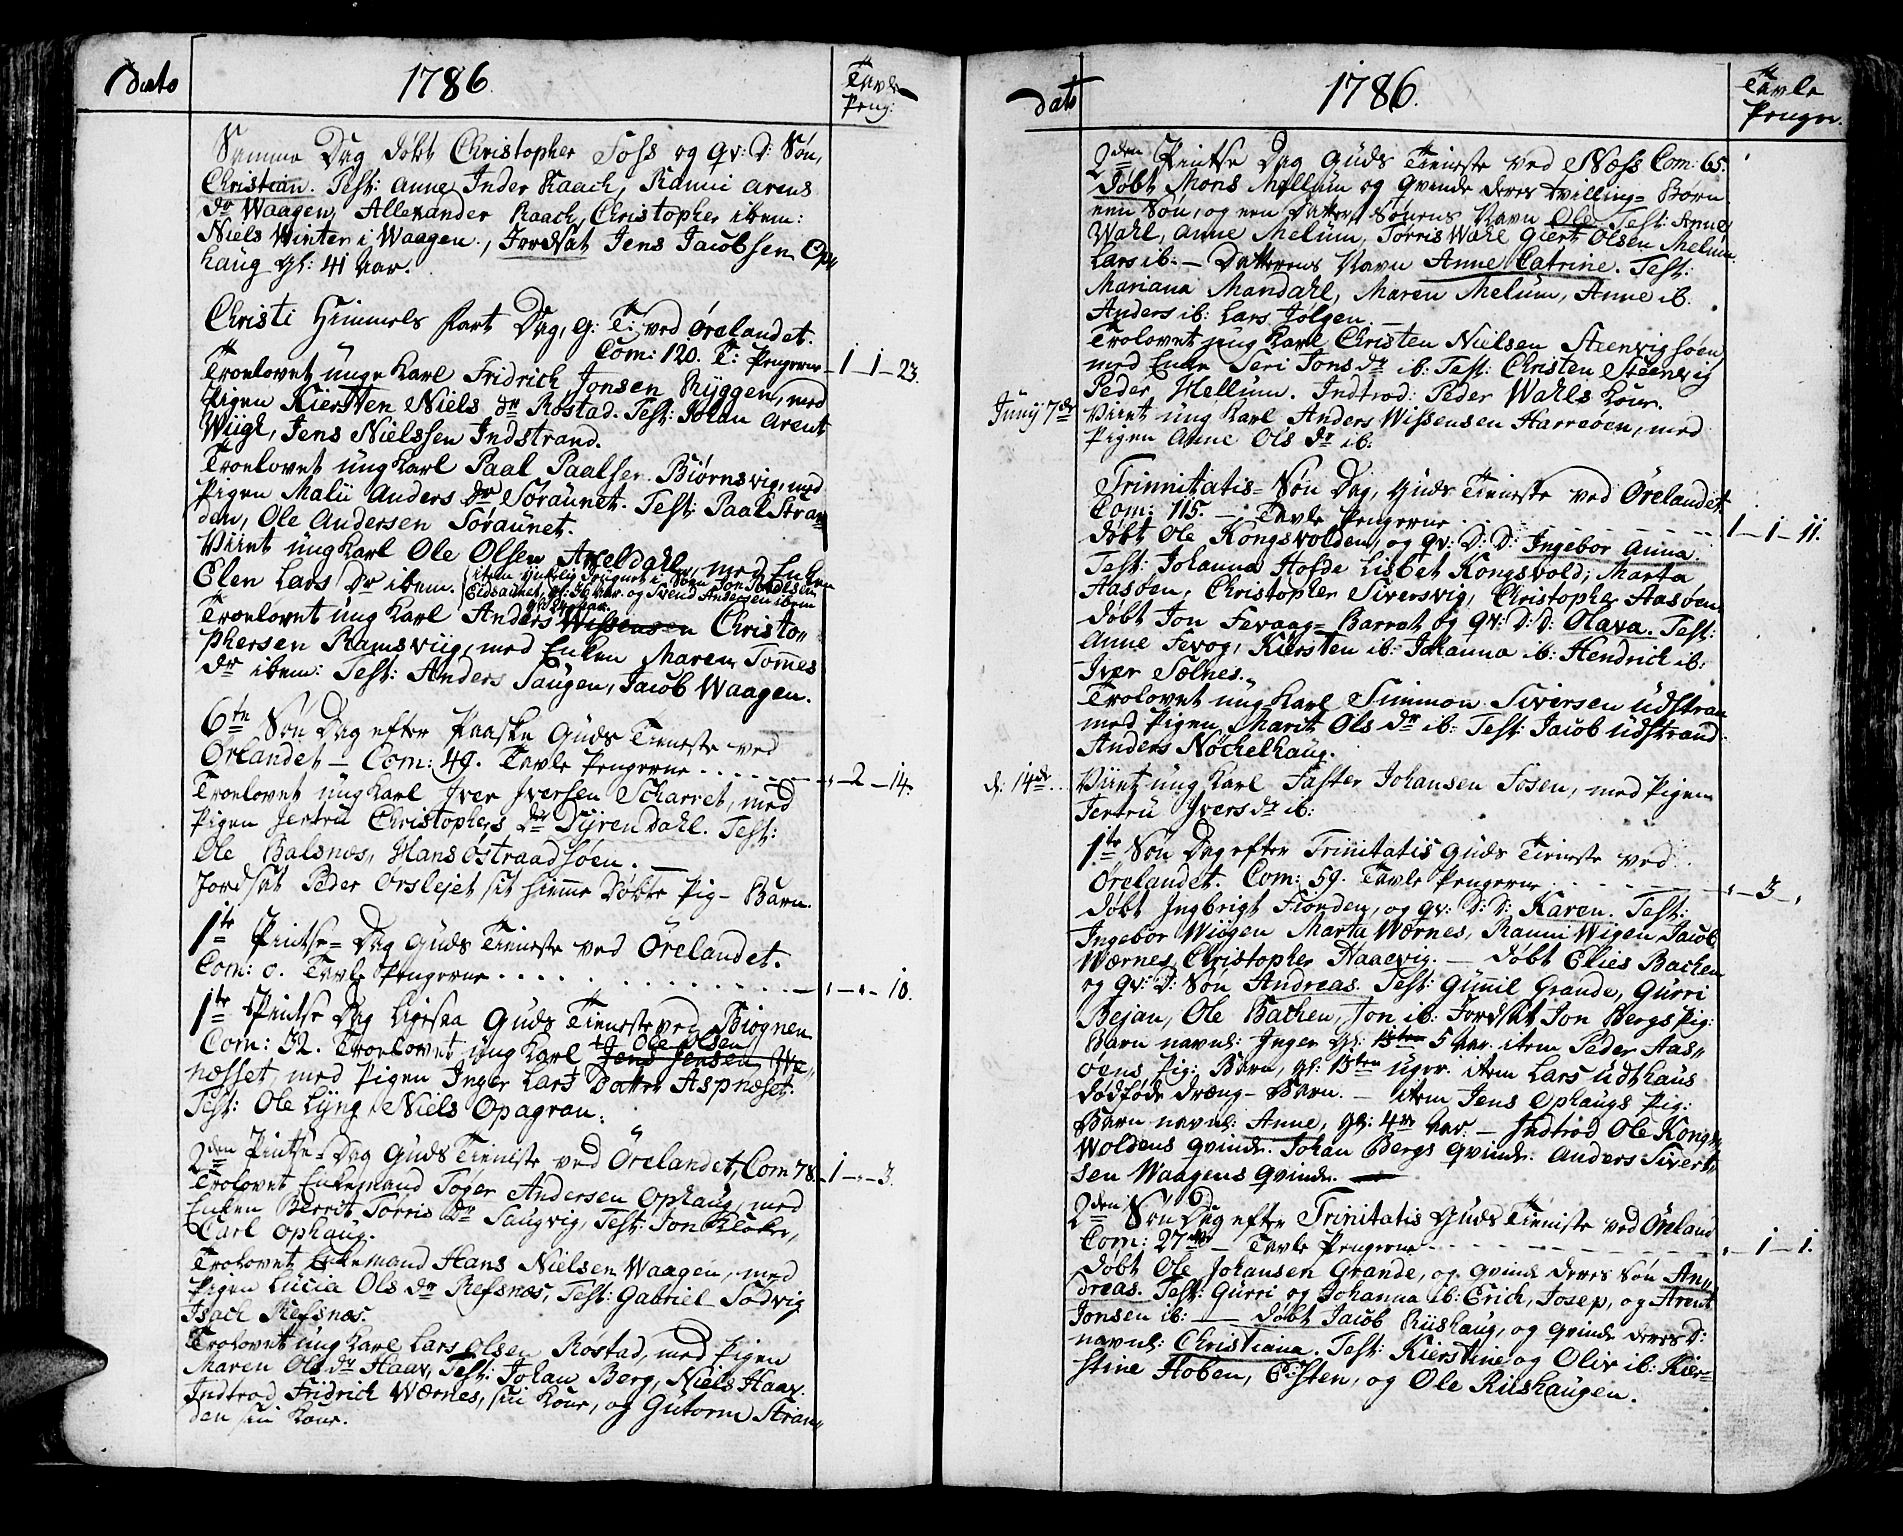 Dato 1786. Tavle
Peng:
Samme Dag døbt Christopher Foss og qv: D: Søn,
Christian. Test: Anne Inder Raach, Ranni Arens
dr Waagen, Allexander Raach, Christopher ibem:
Niels Winter i Waagen., Jordsat Jens Jacobsen Op„
haug gl: 41 aar.
Christi Himmels fart Dag, G: T: ved Ørelandet.
Com: 120. T: Pengerne 1-1-23.
Troelovet unge Karl Fridrich Jonsen Ryggen, med
Pigen Kiersten Niels dr Røstad. Test: Johan Arent
Wiigl, Jens Nielssen Indstrand.
Troelovet ung Karl Paal Paalsen Biørnsvig, med
Pigen Malii Anders dr Søraunet. Test: Paal Stran
den, Ole Andersen Søraunet.
Viint ung Karl Ole Olsen Axeldahl, med Enken
Elen Lars Dr ibem. (item
Eidsaunet, gl: 56 aar. og Svend Andersen ibem
Troelovet ung Karl Anders Wissensen Christo„
phersen Ramsviig, med Enken Maren Tommes
dr ibem: Test: Anders Saugen, Jacob Waagen.
6te Søn Dag efter Paaske Guds Tieneste ved
Ørlandet - Com: 49. Tavle Pengerne „-2-14.
Troelovet ung Karl Iver Iversen Scharret, med
Pigen Jertru Christophers dr Dyrendahl. Test:
Ole Balsnæs, Hans Østraadsøen.
Jordsat Peder Ørslejet sit hiemme døbte Pig-Barn.
1te Pintse-Dag Guds Tieneste ved Ørelandet.
Com: 0. Tavle Pengerne „-„-10.
1te Pintse Dag ligesaa Guds Tieneste ved Biognen
Com: 32. Troelovet ung Karl Jens Jensen Ole Olsen We„
næsset, med Pigen Inger Lars Datter Aspnæset.
Test: Ole Lyng, Niels Opagran.
2den Pintse-Dag Guds Tieniste ved Ørelandet, Com 78. 1-„-3.
Trolovet Enkemand Toger Andersen Ophaug, med
Enken Berrit Torris Dr Saugvig, Test: Jon Kloker,
Carl Ophaug.
Trolovet Enkemand Hans Nielsen Waagen, med
Pigen Lucia Ols dr Refsnæs, Test: Gabriel Sodvig
Isach Refsnæs.
Trolovet ung Karl Lars Olsen Røstad, med Pigen
Maren Ols dr Haav, Test: Johan Berg, Niels Haav.
Indtrod Fridrich Wærnes, sin Kone, og Gutorm Stran„
den sin Kone.
dato 1786. Tavle
Pengn.
2den Pintse Dag Guds Tieneste ved Næss Com: 65.
Døbt Mons Mellum og Qvinde deres tvilling-Børn
een Søn, og een Datter, Sønens Navn Ole Test: Anne
Wahl, Anne Melum, Torris Wahl Giert Olsen Melum
Lars ib: - Datterens Navn Anne Catrine. Test:
Mariana Mandahl, Maren Melum, Anne ib:
Anders ib: Lars Jølgen.
Trolovet ung Karl Christen Nielsen Steenvigsøen
med Enke Seri Jons dr ib: Test: Christen Steenvig
Peder Hellum. Indtrod: Peder Wahls Kone.
Junij 7de Viint ung Karl Anders Wissensen Harreøen, med
Pigen Anne Ols dr ib:
Trinnitatis-Søn Dag, Guds Tieneste ved Ørelandet
Com: 115 - Tavle Pengerne 1-1-11.
døbt Ole Kongsvolden, og qv: D: D: Ingebor Anna.
Test: Johanna Hofde Lisbet Kongsvold, Marta
Aasøen, Christopher Siversvig, Christopher Aasøen.
døbt Jon Fevaag-Barrat og qv: D: D: Olava. Test:
Anne Fevog, Kiersten ib: Johanna ib: Hendrich ib:
Iver Sølnes.
Trolovet ung Karl Simmon Siversen Udstran
med Pigen Marit Ols dr ib: Test: Jacob Udstrand
Anders Nøckelhaug.
d: 14de Viint ung Karl Faster Johansen Fosen, med Pigen
Jertru Ivers dr ib:
1te Søn Dag efter Trinitatis Guds Tieneste ved
Ørelandet. Com: 59. Tavle Pengerne „-3-„
døbt Ingbrigt Fiorden, og qv: D: D: Karen. Test:
Ingebor Wiøgen Marta Wærnes, Ranni Wigen Jacob
Wærnes, Christopher Naaevig. - døbt Elies Bachen
og qv: D: Søn Andreas. Test: Gunnil Grande, Gurri
Bejan, Ole Bachen, Jon ib: Jordsat Jon Bergs Pig:
Barn navnl: Inger gl: 5 Aar. item Peder Aas„
øens Pig: Barn, gl: 13ten uger. item Lars Udthaus
dødføde dreng-Barn. - item Jens Ophaugs Pig:
Barn navnl: Anne, gl: 4re Aar. - Indtrod Ole Kongs„
Woldens qvinde. Johan Bergs Qvinde. Anders Sivert„
sen Waagens Qvinde.
2den Søn Dag efter Trinitatis Guds Tieniste ved Øreland
Com: 27 - Tavle Pengerne „-1-1.
døbt Ole Johansen Grande, og qvinde deres Søn An„
dreas. Test: Gurri og Johanna ib: Erich, Josep, og Arent
Jonsen ib: - døbt Jacob Riishaug, og Qvinde deres D:
navnl: Christiana. Test: Kierstine og Oliv ib: Kier=
stine Hoben, Esten, og Ole Riishaugen.